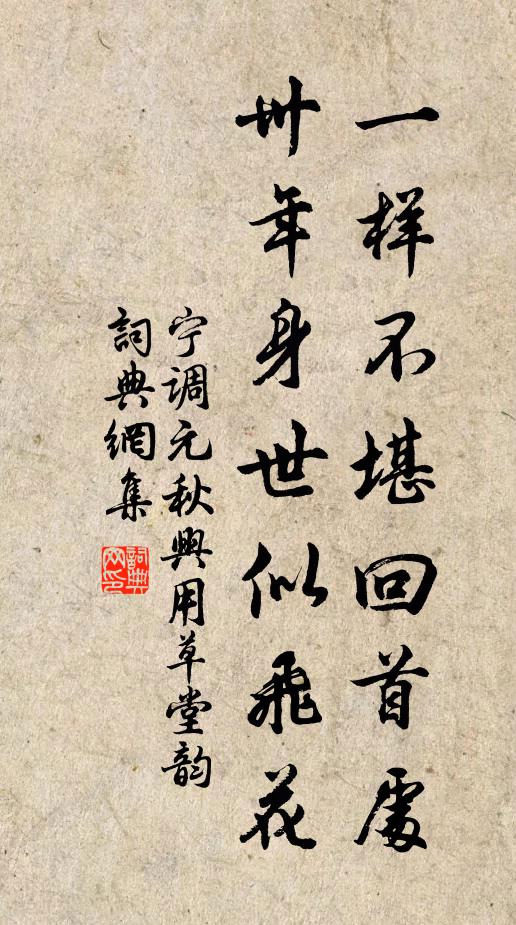 一样不堪回首處
卅年身世似飛花
宁调元秋興用草堂韵
詞典網集
詞典网印